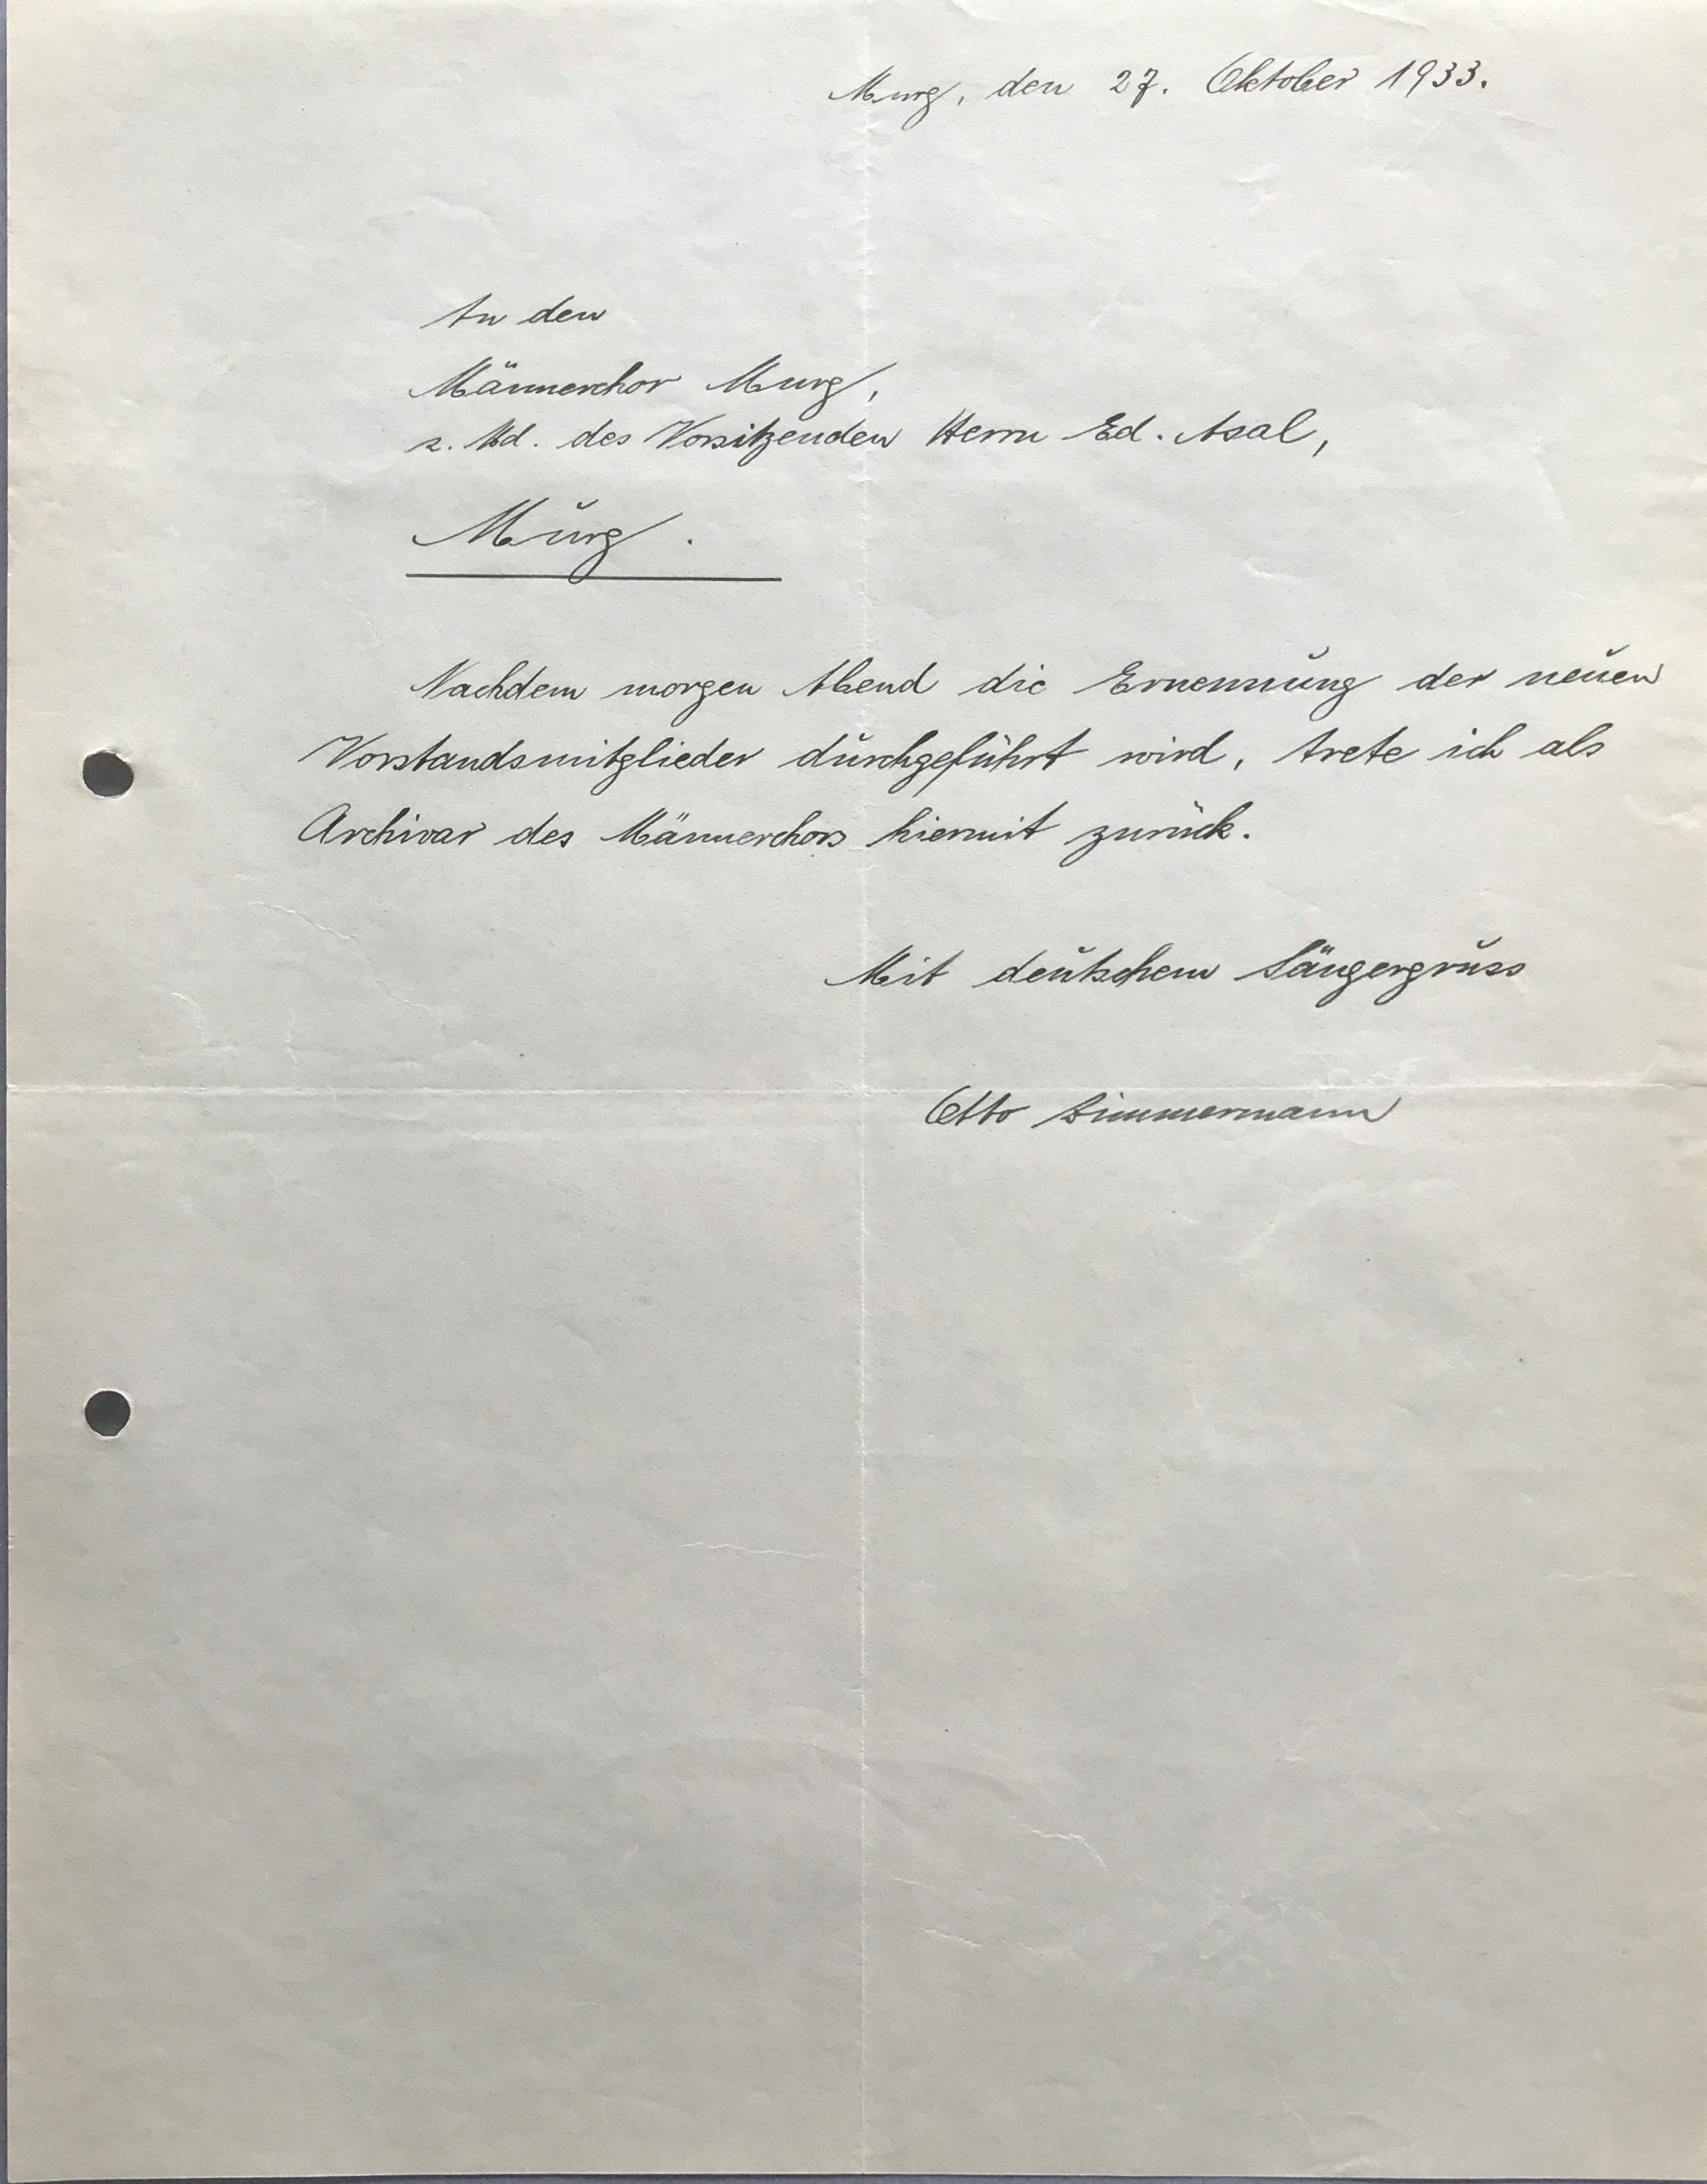 Murg, den 27. Oktober 1933.
An den
Männerchor Murg,
z. Hd. des Vorsitzenden Herrn Ed. Asal,
Murg.
Nachdem morgen Abend die Ernennung der neuen
Vorstandsmitglieder durchgeführt wird, trete ich als
Archivar des Männerchors hiermit zurück.
Mit deutschem Sängergruss
Otto Zimmermann